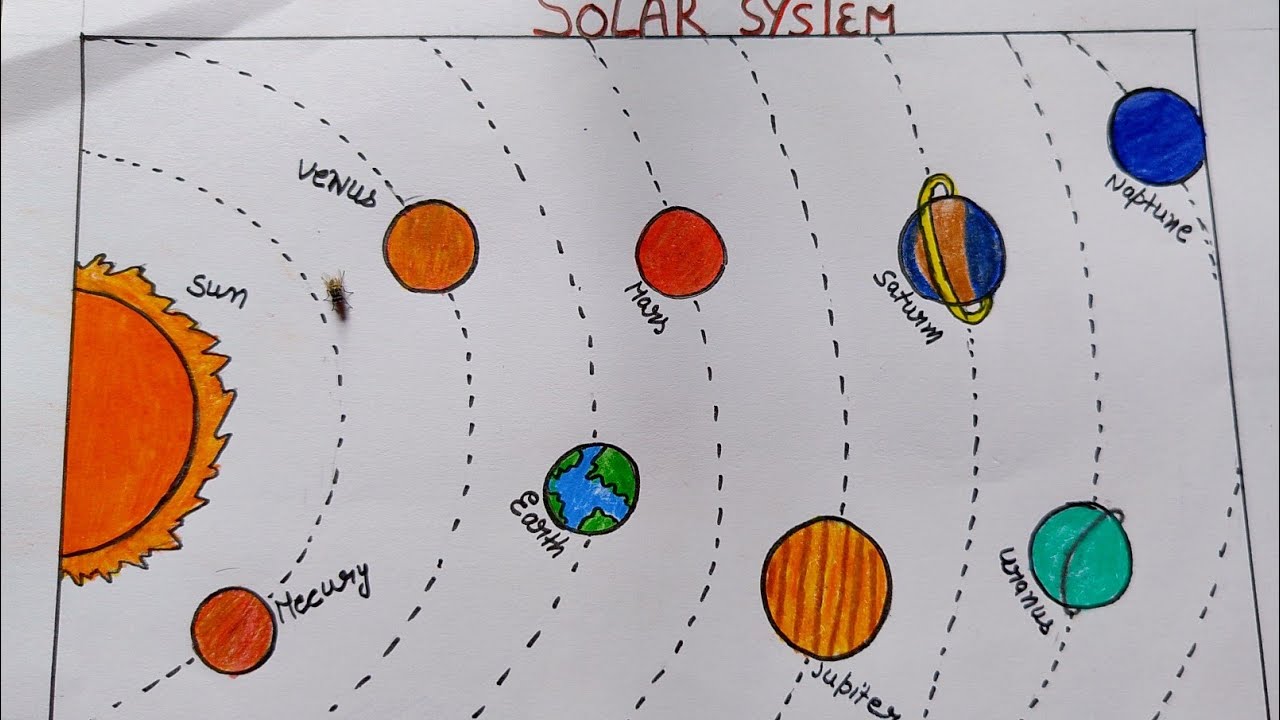 SOLAR SYSTEM
Venus
Sun
Mecury
Earth
Mars
Jupiter
Saturm
Uranus
Naptune